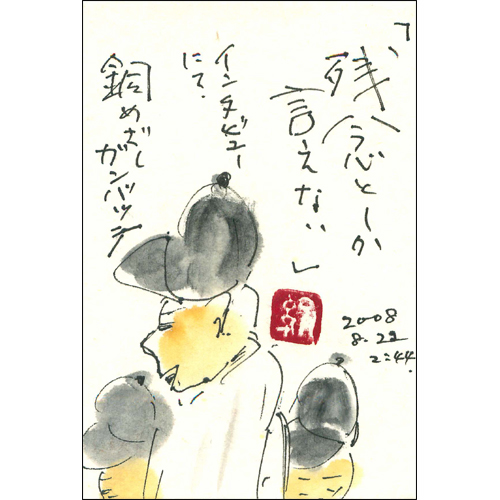 「残念としか
言えない」
インタビュー
にて.
銅めざし
ガンバッテ
2008
8.22
2:44.